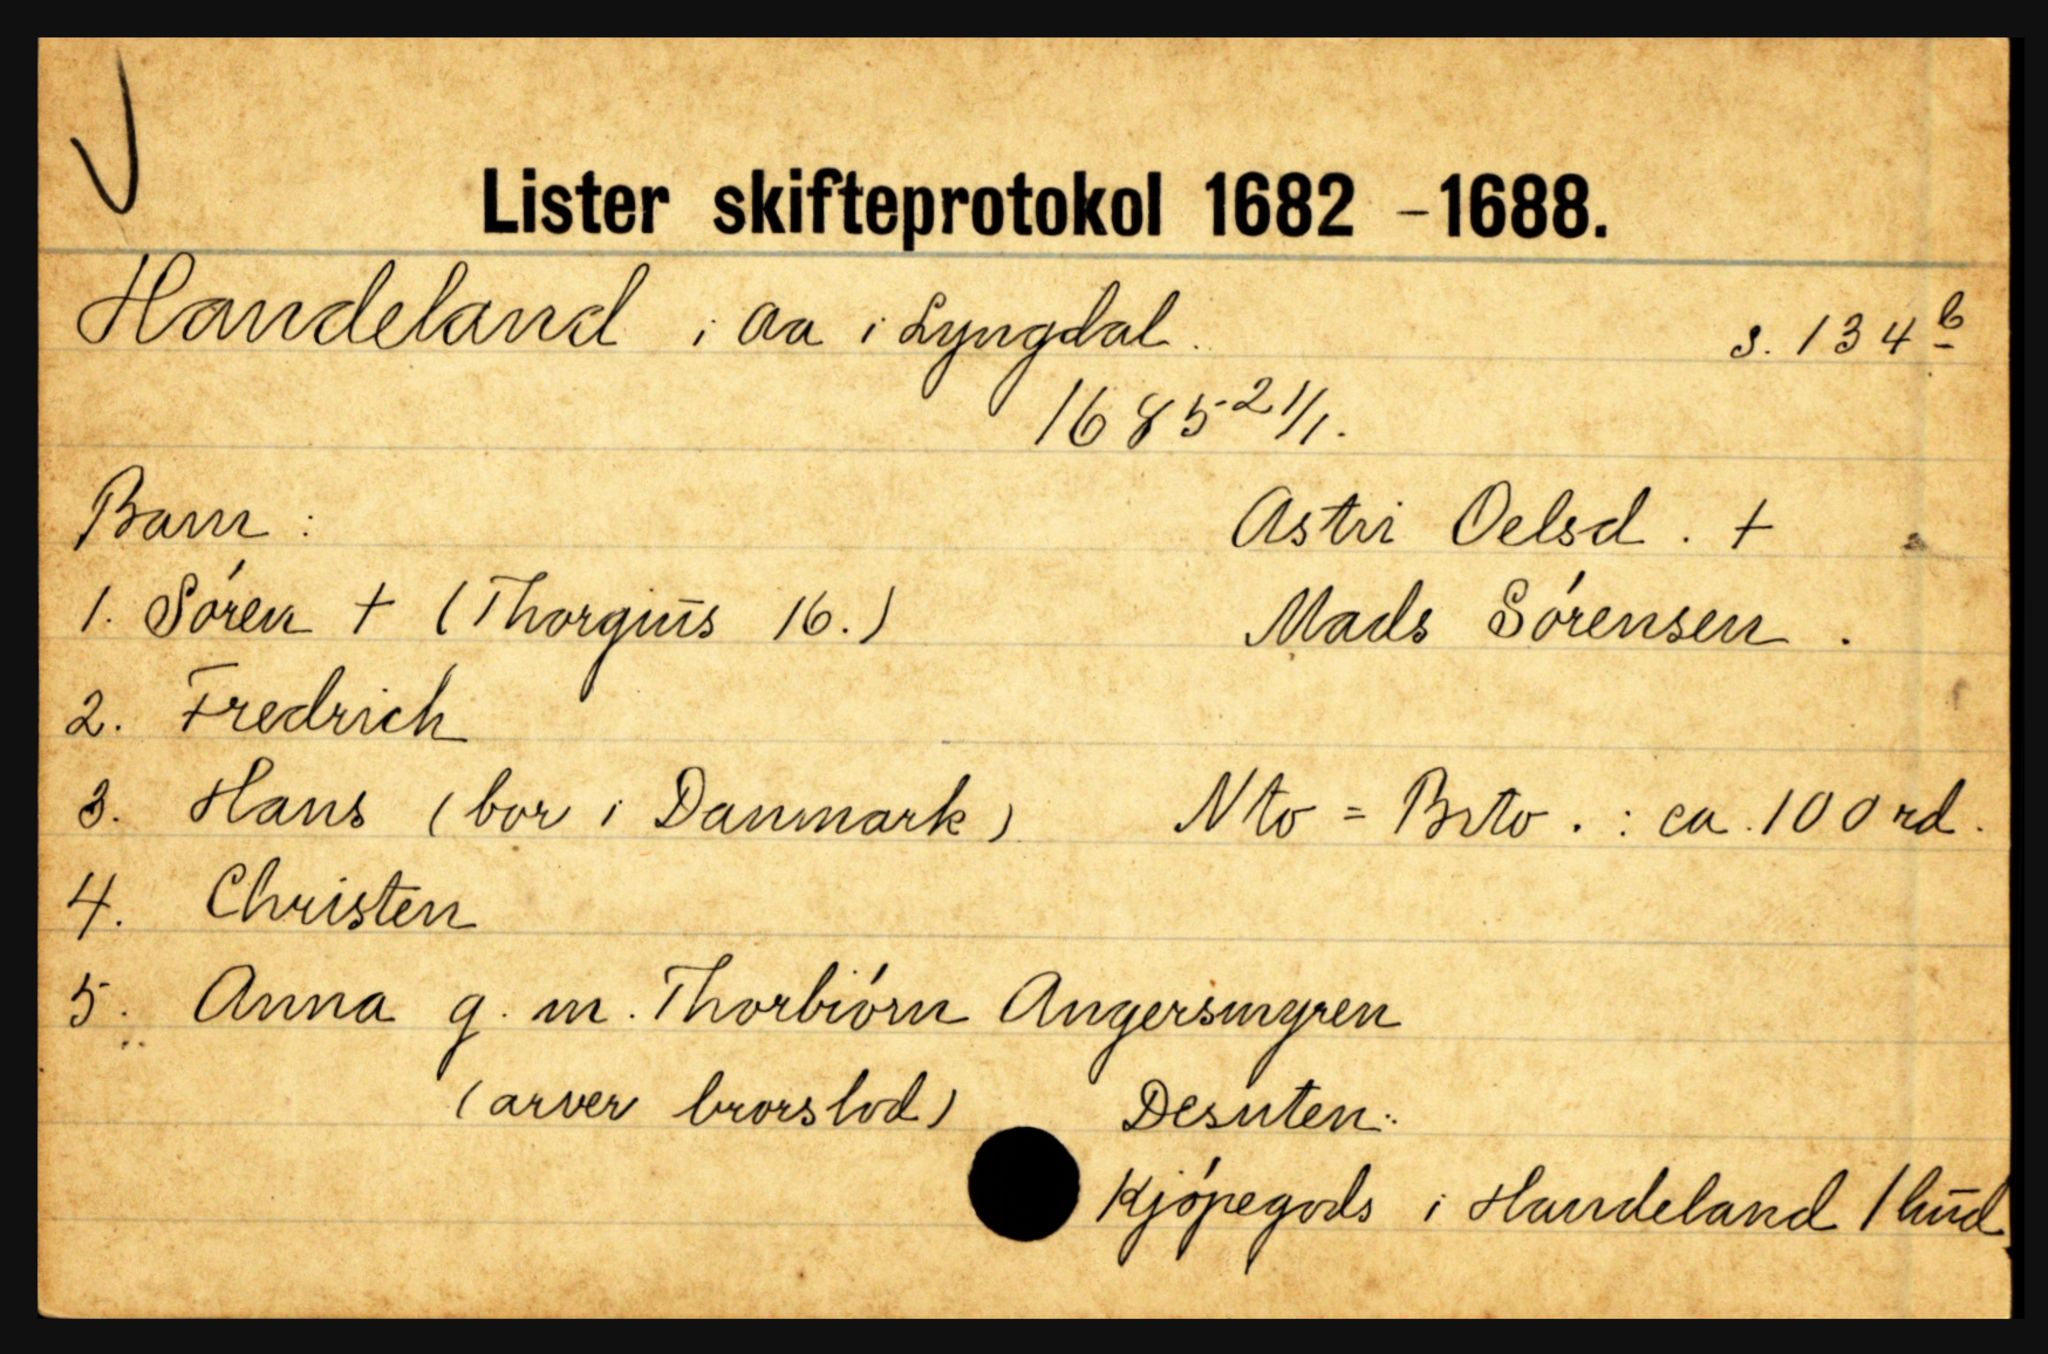 Lister skifteprotokol 1682 - 1688.
Handeland i Aa i Lyngdal. s. 134 b
1685 21/1.
Barn: Astri Oelsd. +
1. Sören + (Thorgius 16.) Mads Sörensen.
2. Fredrich
3. Hans (bor i Danmark) Nto = Brto. : ca. 100 rd.
4. Christen
5. Anna g. m. Thorbiörn Angersmyren
(arver brorslod) Desuten:
Kjöpegods i Handeland 1 hud